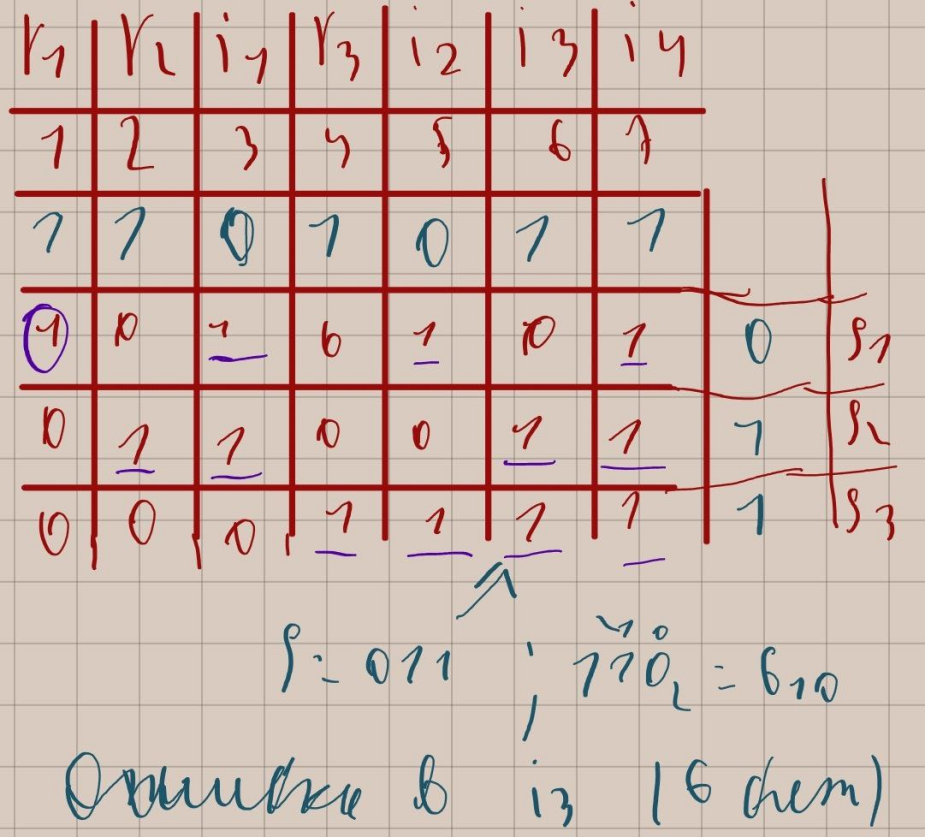 r1 r2 i1 r3 i2 i3 i4
1 2 3 4 5 6 7
1 1 0 1 0 1 1
1 0 1 0 1 0 1 0 S1
0 1 1 0 0 1 1 1 S2
0 0 0 1 1 1 1 1 S3
S = 011 ; 110₂ = 6₁₀
2 1 0
Ошибка в i3 (6 бит)